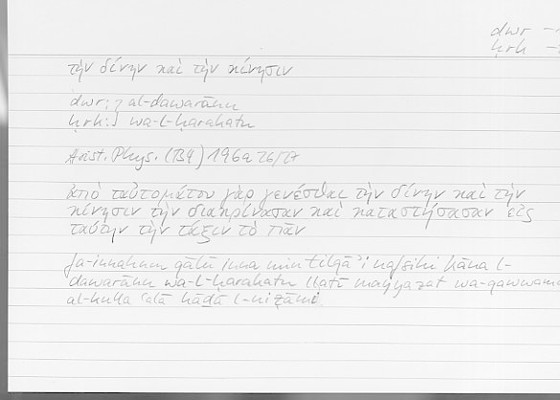 dwr
ḥrk
τὴν δίνην καὶ τὴν κίνησιν
dwr: al-dawarānu
ḥrk: wa-l-ḥarakatu
Arist. Phys. (B4) 196a 26/27
ἀπὸ ταὐτομάτου γὰρ γενέσθαι τὴν δίνην καὶ τὴν
κίνησιν τὴν διακρίνασαν καὶ καταστήσασαν εἰς
ταύτην τὴν τάξιν τὸ πᾶν
fa-innahum qālū inna min tilqāʾi nafsihi kāna l-
dawarānu wa-l-ḥarakatu llatī mayyazat wa-qawwama
al-kulla ʿalā hāḏā l-niẓāmi